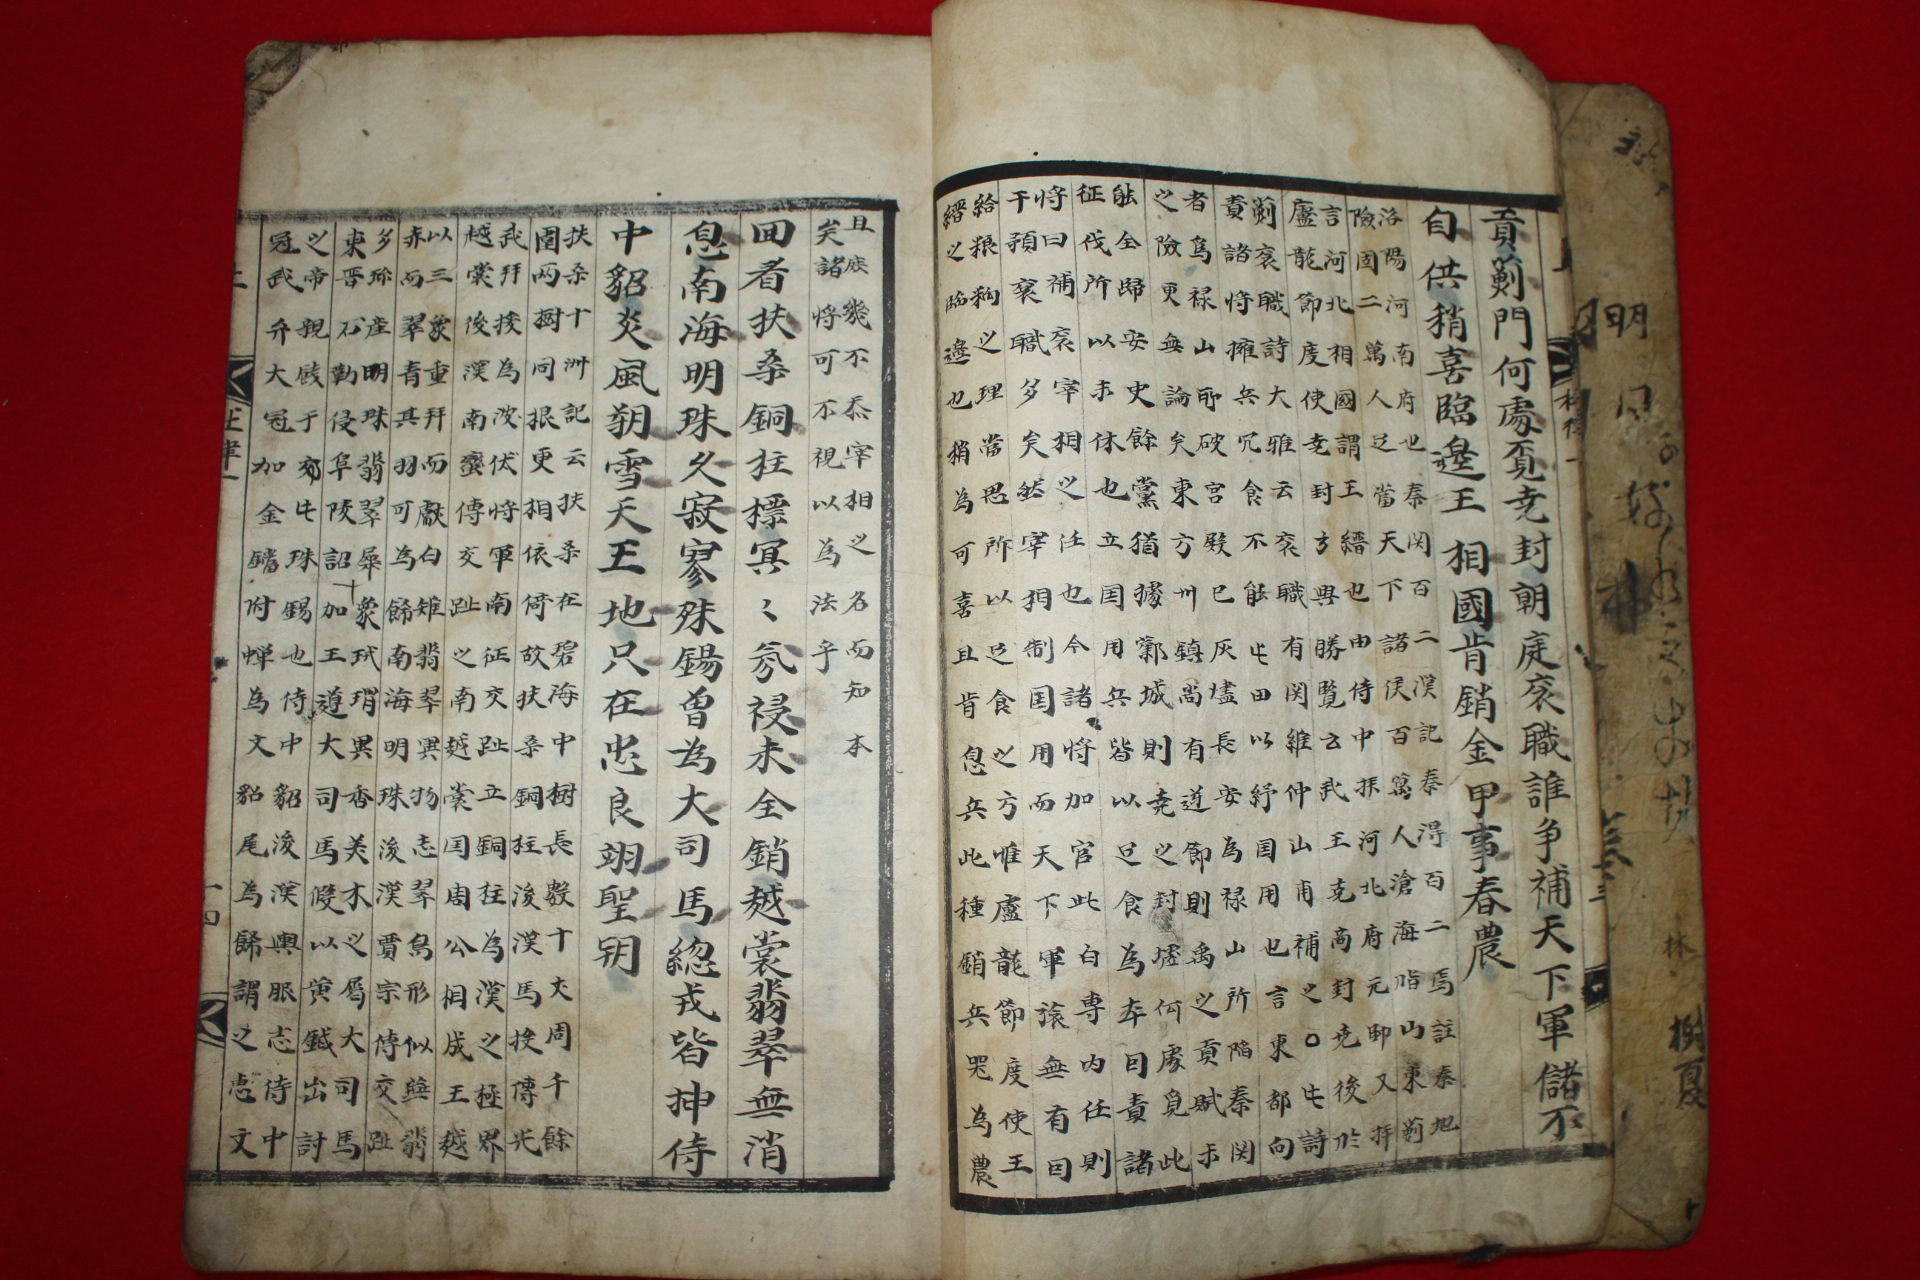 貢薊門何處覓堯封朝庭袞職誰爭補天下軍儲不
自供稍喜臨邊王相國肯銷金甲事春農
洛陽河南府也秦関百二漢記秦得百二焉註秦地
險固二萬人足當天下諸侯百萬人滄海脂山東薊
言河北相國謂王縉也由侍中拝河北府元帥又拝
盧龍節度使堯封方輿勝覽云武王克商封堯後於
薊袞職詩大雅云袞職有関維仲山甫補之〇屯詩
責諸將擁兵冗食不能屯田以紓国用也言東都向
者烏禄山所破宮殿已灰燼長安為禄山所陥秦関
之險更無論矣東方州鎮尚有道節則禹之貢賦未
能全歸安史餘黨猶據鄴城則堯之封墟何處覓此
征伐所以未休也立国用兵皆以足食為本目責諸
將曰補袞宰相之任也今諸將加官此白専内任則
干預袞職多矣然宰相制国用而天下軍旅無有曰
給粮之理當思所以足食之方惟盧龍節度使王
縉之臨邊也稍為可喜且肯息兵此種銷兵哭為農
且庻幾不忝宰相之名而知本
矣諸將可不視以為法乎
囬看扶桑銅柱標冥〻氛祲未全銷越裳翡翠無消
息南海明珠久寂寥殊錫曾為大司馬總戎皆挿侍
中貂炎風朔雪天王地只在忠良翊聖朝
扶桑十洲記云扶桑在碧海中樹長數十丈周千餘
圍兩樹同根更相依倚故扶桑銅柱後漢馬援傳光
武拜援為波伏將軍南征交趾立銅柱為漢之極界
越裳後漢南蠻傳交趾之南越裳国周公相成王越
以三象重拜而獻白雉翡翠異物志翠鳥形似燕翡
赤而翠青其羽可為餙南海明珠後漢賈宗傳交趾
多珎産明珠翡翠犀象玳瑁異香美木之屬大司馬
東晋石勒侵阜陵詔加王導大司馬假以黄鉞出討
之帝親餞于郊屯珠錫也侍中貂後漢輿服志侍中
冠武弁大冠加金鐺附蟬為文貂尾為餙謂之惠文